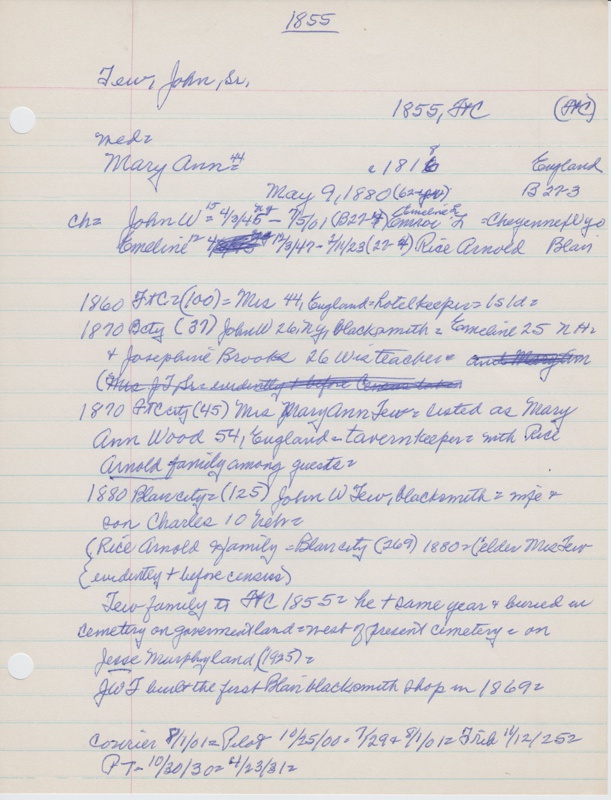 1855
Tew, John, Sr.
1855, FtC (FtC)
med=
Mary Ann= 44 c 1816 8 England
May 9, 1880 (62 yrs) B22-3
ch= John W 15 = 4/3/45 - 7/5/01 (B22-4) Emeline E = Cheyenne Wyo
Emeline 12 12/3/47 - 2/1/23 (22-4) Rice Arnold Blair
1860 FtC = (100) = Mrs 44, England = hotelkeeper = Isld =
1870 Bcty (37) John W 26 N.Y, blacksmith = Emeline 25 N.H.
& Josephine Brooks 26 Wis teacher = and Mary Ann
(Mrs J T Sr = evidently + before Census taken
1870 FtC city (45) Mrs Mary Ann Tew = listed as Mary
Ann Wood 54, England = tavernkeeper = with Rice
Arnold family among guests =
1880 Blair city = (125) John W Tew, blacksmith = wife &
son Charles 10 Neb =
(Rice Arnold & family = Blair city (269) 1880 = (elder Mrs Tew
(evidently + before census)
Tew family to FtC 1855 = he + same year & buried in
cemetery on government land = west of present cemetery = on
Jesse Murphy land (1925) =
JWT built the first Blair blacksmith shop in 1869 =
Courier 8/1/01 = Pilot 10/25/00 = 7/29 & 8/1/01 = Trib 11/12/25 =
P-T - 10/30/30 = 4/23/31 =